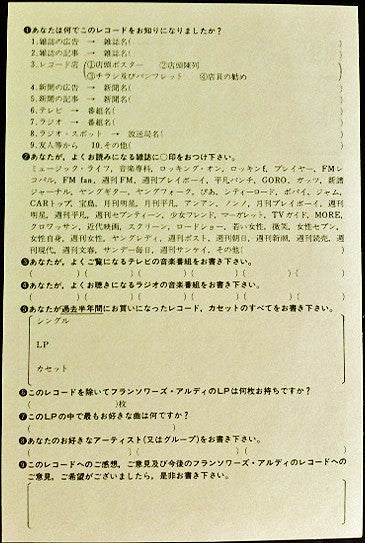 ❶あなたは何でこのレコードをお知りになりましたか?
1.雑誌の広告 → 雑誌名( )
2.雑誌の記事 → 雑誌名( )
3.レコード店 ①店頭ポスター ②店頭陳列
③チラシ及びパンフレット ④店員の勧め
4.新聞の広告 → 新聞名( )
5.新聞の記事 → 新聞名( )
6.テレビ → 番組名( )
7.ラジオ → 番組名( )
8.ラジオ・スポット → 放送局名( )
9.友人等から 10.その他( )
❷あなたが、よくお読みになる雑誌に○印をおつけ下さい。
ミュージック・ライフ, 音楽専科, ロッキング・オン, ロッキンf, プレイヤー, FMレ
コパル, FM fan, 週刊FM, 週刊プレイボーイ, 平凡パンチ, GORO, ガッツ, 新譜
ジャーナル, ヤングギター, ヤングフォーク, ぴあ, シティーロード, ポパイ, ジャム,
CARトップ, 宝島, 月刊明星, 月刊平凡, アンアン, ノンノ, 月刊プレイボーイ, 週刊
明星, 週刊平凡, 週刊セブンティーン, 少女フレンド, マーガレット, TVガイド, MORE,
クロワッサン, 近代映画, スクリーン, ロードショー, 若い女性, 微笑, 女性セブン,
女性自身, 週刊女性, ヤングレディ, 週刊ポスト, 週刊朝日, 週刊新潮, 週刊読売, 週
刊現代, 週刊文春, サンデー毎日, 週刊サンケイ, その他( )
❸あなたが, よくご覧になるテレビの音楽番組をお書き下さい。
( )( )( )( )( )
❹あなたが, よくお聴きになるラジオの音楽番組をお書き下さい。
( )( )( )( )( )
❺あなたが過去半年間にお買いになったレコード, カセットのすべてをお書き下さい。
シングル
LP
カセット
❻このレコードを除いてフランソワーズ・アルディのLPは何枚お持ちですか?
( )枚
❼このLPの中で最もお好きな曲は何ですか?
( )
❽あなたのお好きなアーティスト(又はグループ)をお書き下さい。
( )( )( )( )
❾このレコードへのご感想, ご意見及び今後のフランソワーズ・アルディのレコードへの
ご意見, ご希望がございましたら, 是非お書き下さい。